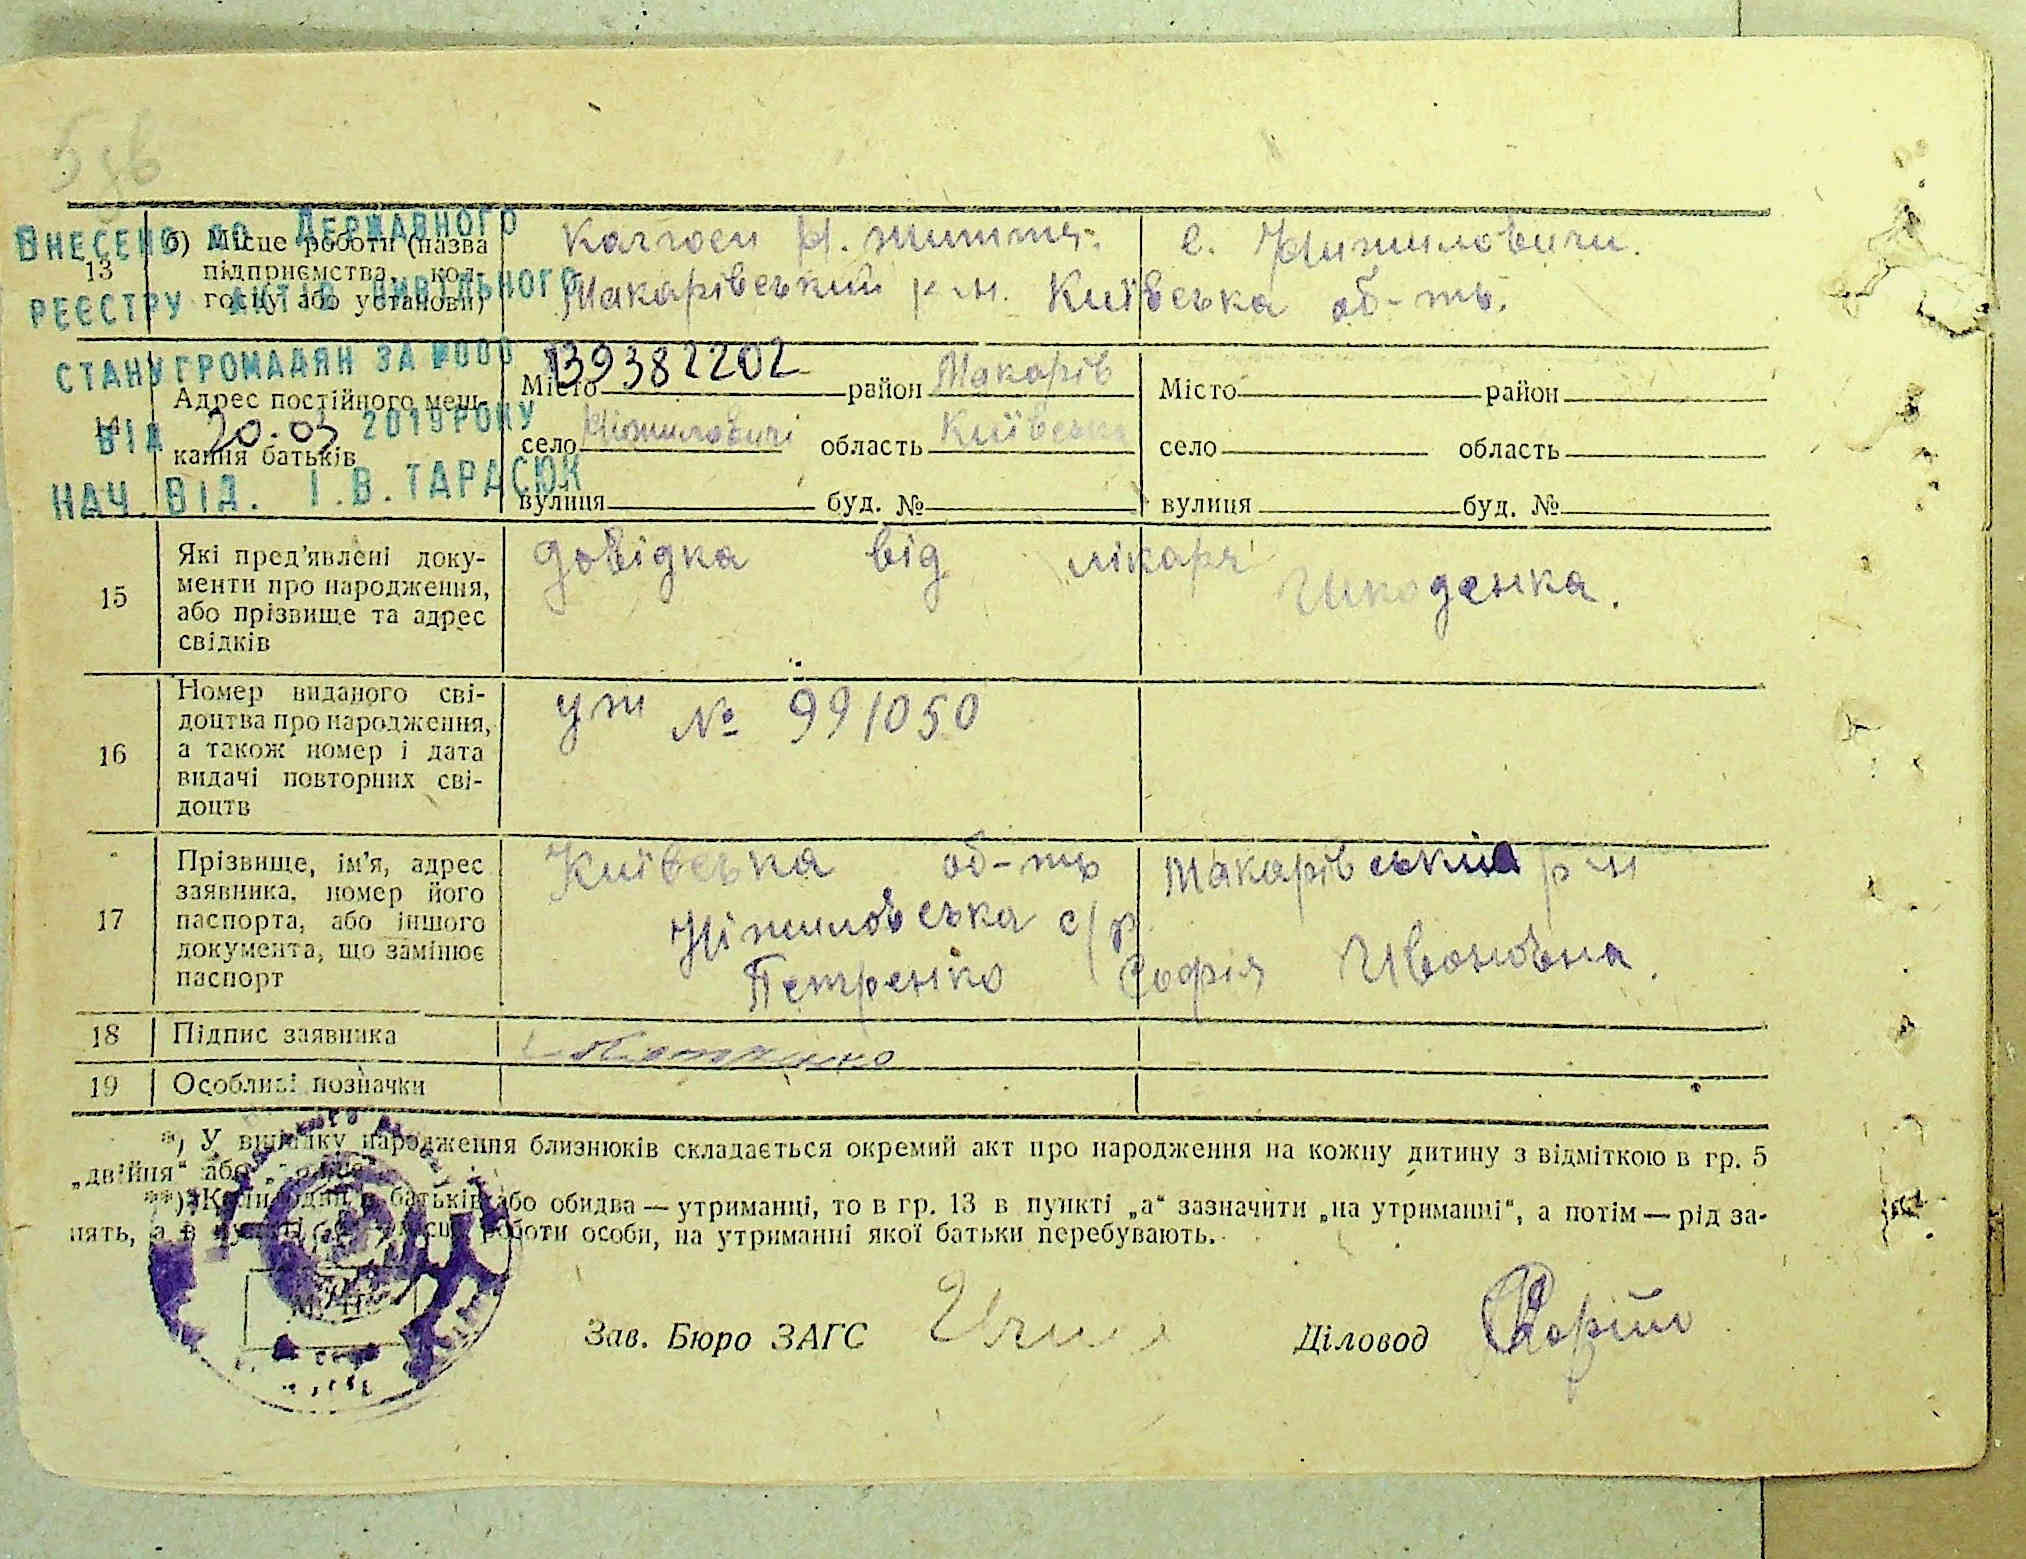 ВНЕСЕНО ДО ДЕРЖАВНОГО
РЕЄСТРУ АКТІВ ЦИВІЛЬНОГО
СТАНУ ГРОМАДЯН ЗА №000
139382202
ВІД 20.03 2019 РОКУ
НАЧ. ВІД. І.В.ТАРАСЮК
13
б) Місце роботи (назва
підприємства, кол-
госпу або установи)
Колгосп Н. життя. с. Ніжиловичи.
Макарівський р-н. Київська об-ть.
Адрес постійного меш-
кання батьків
Місто район Макарів
село Ніжиловичі область Київська
вулиця буд. №
Місто район
село область
вулиця буд. №
15
Які пред'явлені доку-
менти про народження,
або прізвище та адрес
свідків
довідка від лікаря
Шкоденка.
16
Номер виданого сві-
доцтва про народження,
а також номер і дата
видачі повторних сві-
доцтв
уж № 991050
17
Прізвище, ім'я, адрес
заявника, номер його
паспорта, або іншого
документа, що замінює
паспорт
Київська об-ть Макарівський р-н
Ніжиловська с/р
Петренко Софія Ивановна.
18
Підпис заявника
19
Особливі позначки
*) У випадку народження близнюків складається окремий акт про народження на кожну дитину з відміткою в гр. 5
„двійня“ або
**) Коли один з батьків або обидва — утриманці, то в гр. 13 в пункті „а“ зазначити „на утриманні“, а потім — рід за-
нять, а в пункті роботи особи, на утриманні якої батьки перебувають.
Зав. Бюро ЗАГС
Діловод